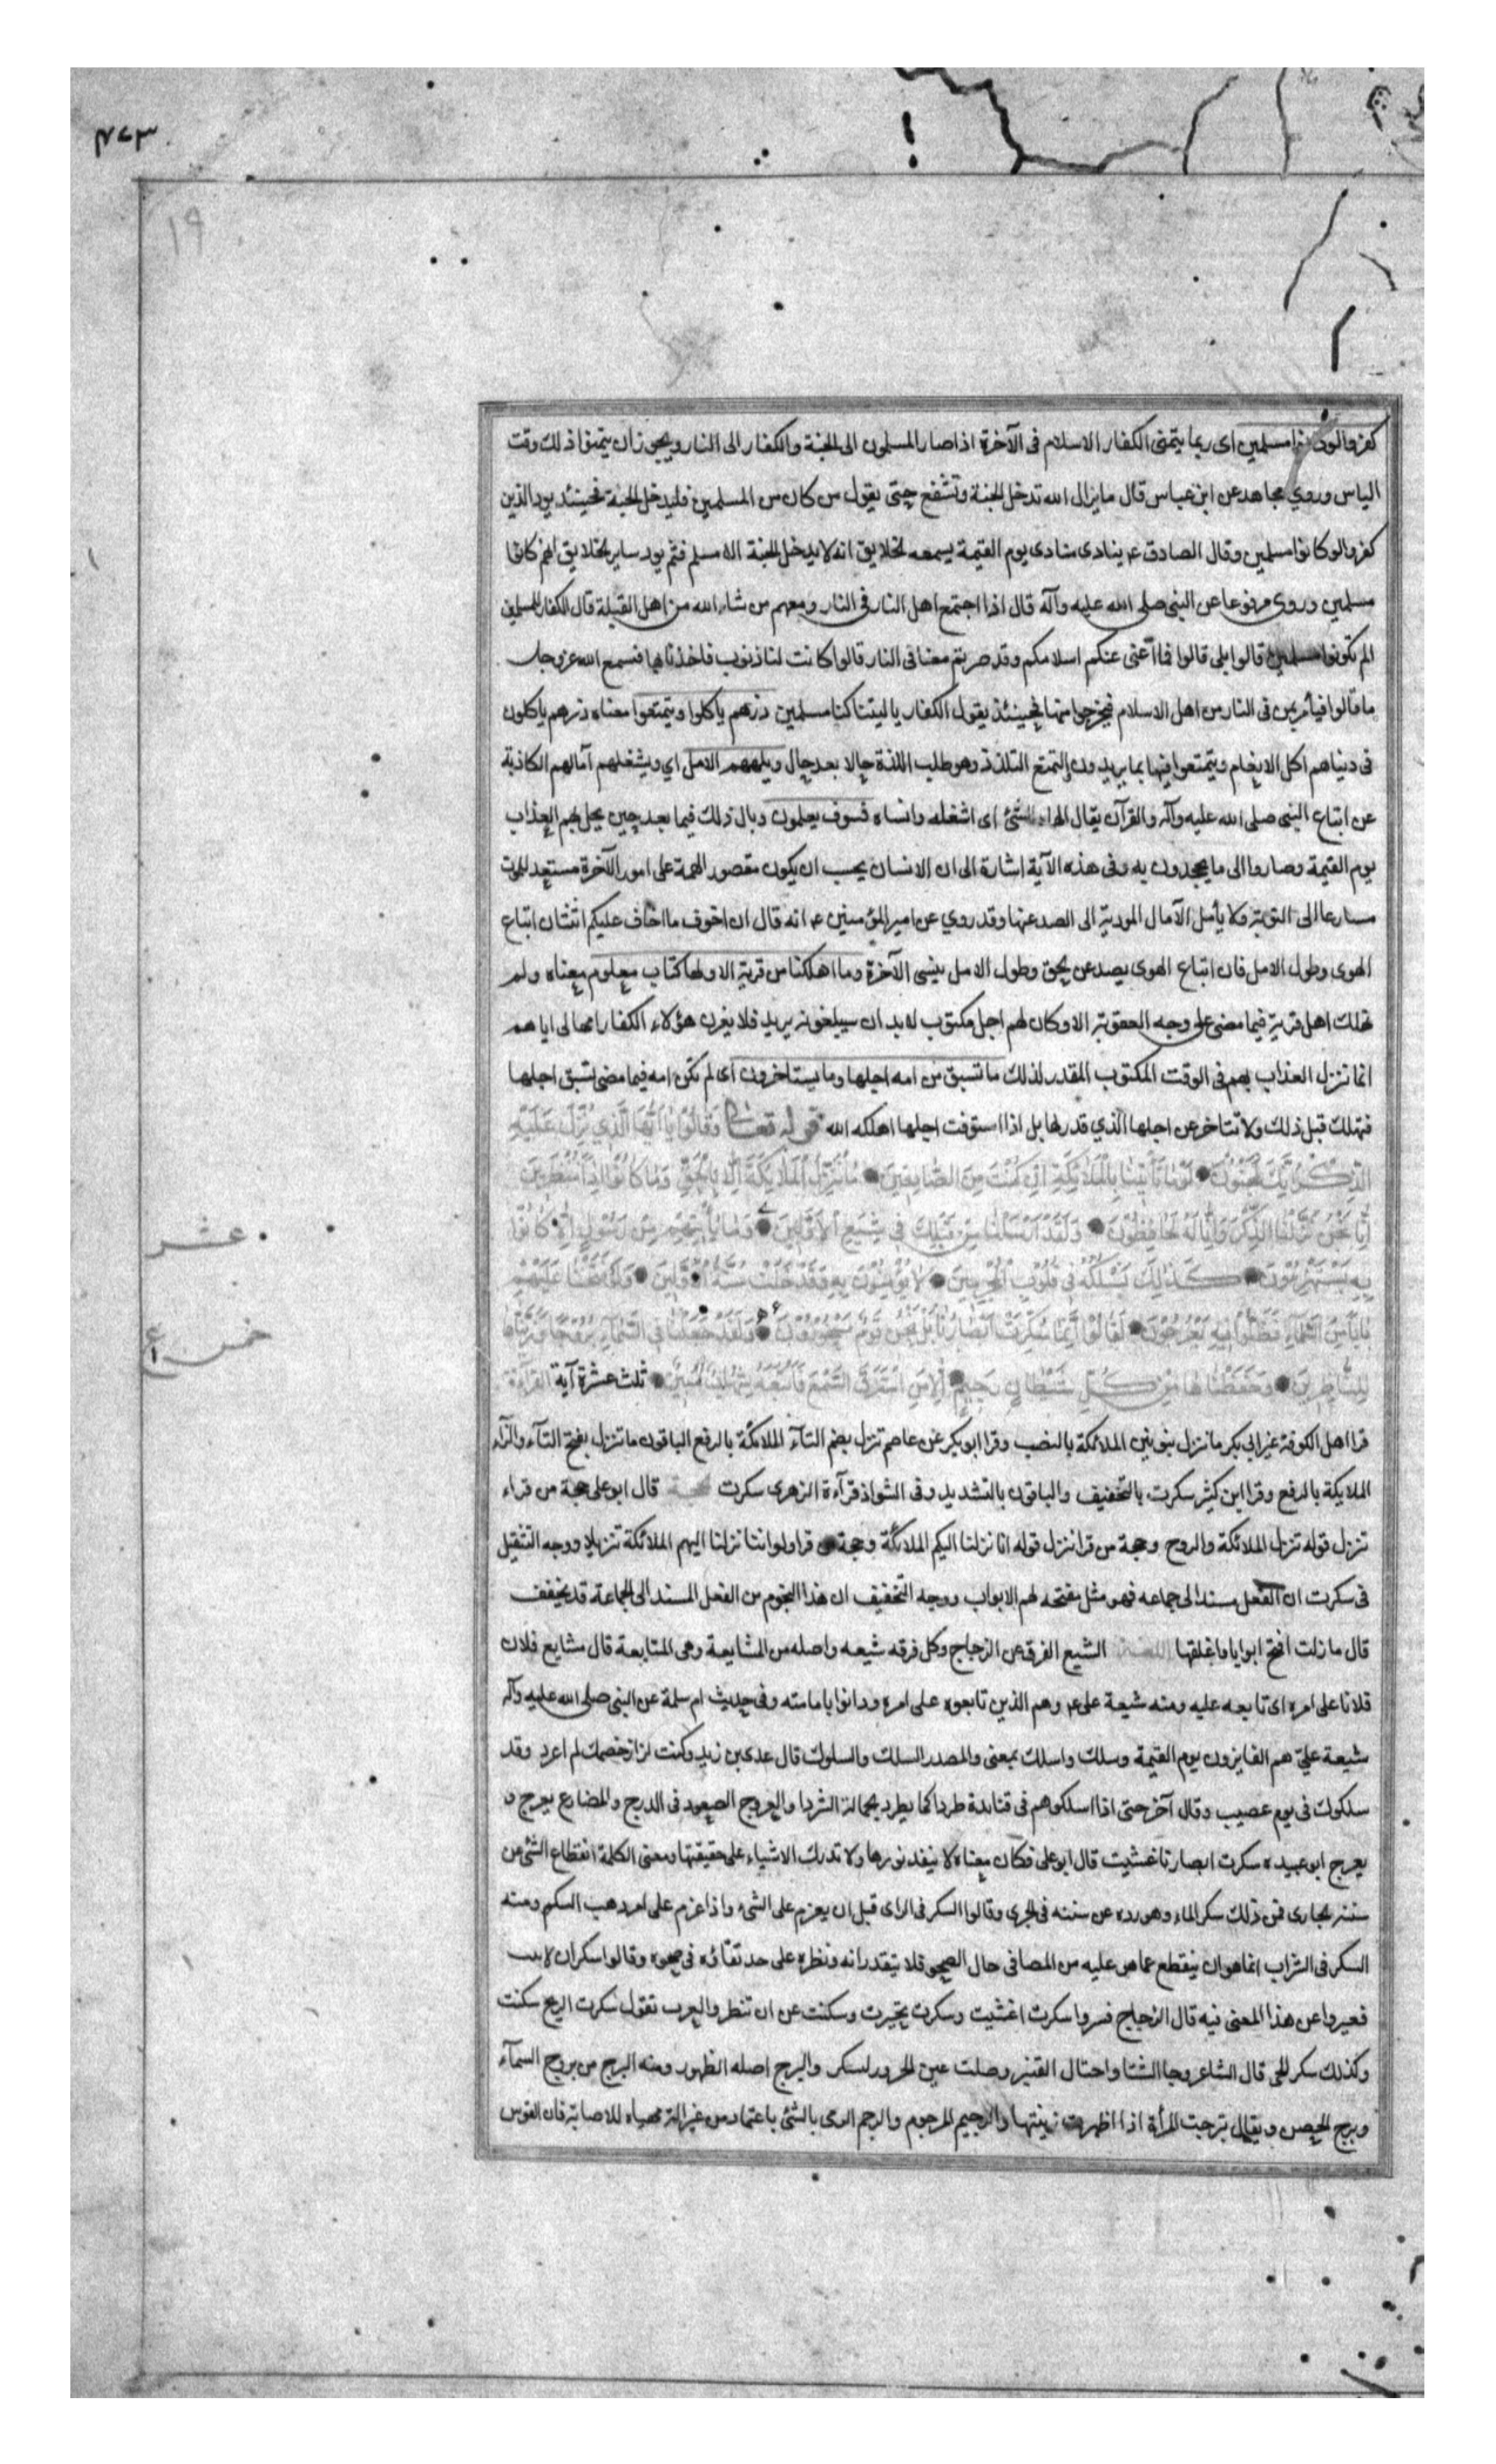 ۴۷۳
۱۹
كفروا لو كانوا مسلمين اى ربما يتمنى الكفار الاسلام فى الآخرة اذا صار المسلمون الى الجنة والكفار الى النار ويجوز ان يتمنوا ذلك وقت
الياس وروي مجاهد عن ابن عباس قال ما يزال الله تدخل الجنة وتشفع حتى يقول من كان من المسلمين فليدخل الجنة فحينئذ يود الذين
كفروا لو كانوا مسلمين وقال الصادق ع ينادى منادى يوم القيمة يسمعه الخلايق انه لا يدخل الجنة الا مسلم فثم يود ساير الخلايق انهم كانوا
مسلمين وروى مرفوعا عن النبى صلى الله عليه وآله قال اذا اجتمع اهل النار فى النار ومعهم من شاء الله من اهل القبلة قال الكفار للمسلمين
الم تكونوا مسلمين قالوا بلى قالوا فما اغنى عنكم اسلامكم وقد صرتم معنا فى النار قالوا كانت لنا ذنوب فاخذنا بها فسمع الله عز وجل
ما قالوا فيأمر بمن فى النار من اهل الاسلام فيخرجوا منها فحينئذ يقول الكفار يا ليتنا كنا مسلمين ذرهم ياكلوا ويتمتعوا معناه ذرهم ياكلون
فى دنياهم اكل الانعام ويتمتعوا فيها بما يريدون والتمتع التلذذ وهو طلب اللذة حالا بعد حال ويلههم الامل اي ويشغلهم آمالهم الكاذبة
عن اتباع النبى صلى الله عليه وآله والقرآن يقال الهاه الشئ اى اشغله وانساه فسوف يعلمون وبال ذلك فيما بعد حين يحل بهم العذاب
يوم القيمة وصاروا الى ما يجحدون به وفى هذه الآية اشارة الى ان الانسان يجب ان يكون مقصور الهمة على امور الآخرة مستعد للموت
مسارعا الى التوبة ولا يأمل الآمال المودية الى الصد عنها وقد روي عن امير المؤمنين ع انه قال ان اخوف ما اخاف عليكم اثنتان اتباع
الهوى وطول الامل فان اتباع الهوى يصد عن الحق وطول الامل ينسى الآخرة وما اهلكنا من قرية الا ولها كتاب معلوم معناه ولم
نهلك اهل قرية فيما مضى على وجه العقوبة الا وكان لهم اجل مكتوب لا بد ان سيبلغونه يريد فلا يغرن هؤلاء الكفار امهالى اياهم
انما تنزل العذاب بهم فى الوقت المكتوب المقدر لذلك ما تسبق من امه اجلها وما يستاخرون اى لم تكن امه فيما مضى تسبق اجلها
فتهلك قبل ذلك ولا تتاخر عن اجلها الذي قدر لها بل اذا استوفت اجلها اهلكه الله قوله تعالى وَقَالُوا يَا اَيُّهَا الَّذِي نُزِّلَ عَلَيْهِ
الذِّكْرُ اِنَّكَ لَمَجْنُونٌ لَوْ مَا تَأْتِينَا بِالْمَلَائِكَةِ اِنْ كُنْتَ مِنَ الصَّادِقِينَ مَا نُنَزِّلُ الْمَلَائِكَةَ اِلَّا بِالْحَقِّ وَمَا كَانُوا اِذًا مُنْظَرِينَ
اِنَّا نَحْنُ نَزَّلْنَا الذِّكْرَ وَاِنَّا لَهُ لَحَافِظُونَ وَلَقَدْ اَرْسَلْنَا مِنْ قَبْلِكَ فِي شِيَعِ الْاَوَّلِينَ وَمَا يَأْتِيهِمْ مِنْ رَسُولٍ اِلَّا كَانُوا
عشر
بِهِ يَسْتَهْزِئُونَ كَذَلِكَ نَسْلُكُهُ فِي قُلُوبِ الْمُجْرِمِينَ لَا يُؤْمِنُونَ بِهِ وَقَدْ خَلَتْ سُنَّةُ الْاَوَّلِينَ وَلَوْ فَتَحْنَا عَلَيْهِمْ
بَابًا مِنَ السَّمَاءِ فَظَلُّوا فِيهِ يَعْرُجُونَ لَقَالُوا اِنَّمَا سُكِّرَتْ اَبْصَارُنَا بَلْ نَحْنُ قَوْمٌ مَسْحُورُونَ وَلَقَدْ جَعَلْنَا فِي السَّمَاءِ بُرُوجًا وَزَيَّنَّاهَا
خمس
لِلنَّاظِرِينَ وَحَفِظْنَاهَا مِنْ كُلِّ شَيْطَانٍ رَجِيمٍ اِلَّا مَنِ اسْتَرَقَ السَّمْعَ فَاَتْبَعَهُ شِهَابٌ مُبِينٌ ثلث عشرة آية القراءة
قرا اهل الكوفة غير ابى بكر ما ننزل بنونين الملائكة بالنصب وقرا ابو بكر عن عاصم تنزل بضم التآء الملائكة بالرفع الباقون ما تنزل بفتح التآء والزآء
الملايكة بالرفع وقرا ابن كثير سكرت بالتخفيف والباقون بالتشديد وفى الشواذ قرآءة الزهرى سكرت قال ابو على حجة من قراء
تنزل قوله تنزل الملائكة والروح وحجة من قرا ننزل قوله انا نزلنا اليكم الملائكة وحجة قرا ولو اننا نزلنا اليهم الملائكة تنزيلا ووجه التثقيل
فى سكرت ان الفعل مسند الى جماعه فهو مثل مفتحه لهم الابواب ووجه التخفيف ان هذا النجوم من الفعل المسند الى الجماعة قد يخفف
قال ما زلت افتح ابوابا واغلقها اللغة الشيع الفرق عن الزجاج وكل فرقه شيعه واصله من المشايعة وهى المتابعة قال مشايع فلان
فلانا على امره اى تابعه عليه ومنه شيعة على ع وهم الذين تابعوه على امره ودانوا بامامته وفى حديث ام سلمة عن النبى صلى الله عليه وآله
شيعة عليّ هم الفايزون يوم القيمة وسلك واسلك بمعنى والمصدر السلك والسلوك قال عدى بن زيد وكنت لزاز خصمك لم اعرد وقد
سلكوك فى يوم عصيب وقال آخر حتى اذا اسلكوهم فى قتايدة طردا كما يطرد الجمالة الشردا والعروج الصعود فى الدرج والمضارع يعرج و
يعرج ابو عبيده سكرت ابصارنا غشيت قال ابو على فكان معناه لا ينفذ نورها ولا تدرك الاشياء على حقيقتها ومعنى الكلمة انقطاع الشئ من
سننه الجارى فمن ذلك سكر الماء وهو رده عن سننه فى الجرى وقالوا السكر فى الراى قبل ان يعزم على الشىء واذا عزم على امر ذهب السكر ومنه
السكر فى الشراب انما هو ان ينقطع عما هى عليه من المصافى حال الصحو فلا ينفذ رانه ونظره على حد نفاذه فى صحوه وقالوا سكران لا يبت
فعبروا عن هذا المعنى فيه قال الزجاج فسروا سكرت اغشيت وسكرت تحيرت وسكنت عن ان تنظر والعرب تقول سكرت الريح سكنت
وكذلك سكر الحى قال الشاعر وجا الشتا واحتال القنبر وصلت عين الحرور لسكر والبرج اصله الظهور ومنه البرج من بروج السمآء
وبرج الحصن ويقال برجت المرأة اذا اظهرت زينتها والرجيم المرجوم والرجم الرمى بالشئ باعتماد من غير الة مهياه للاصابة فان القوس